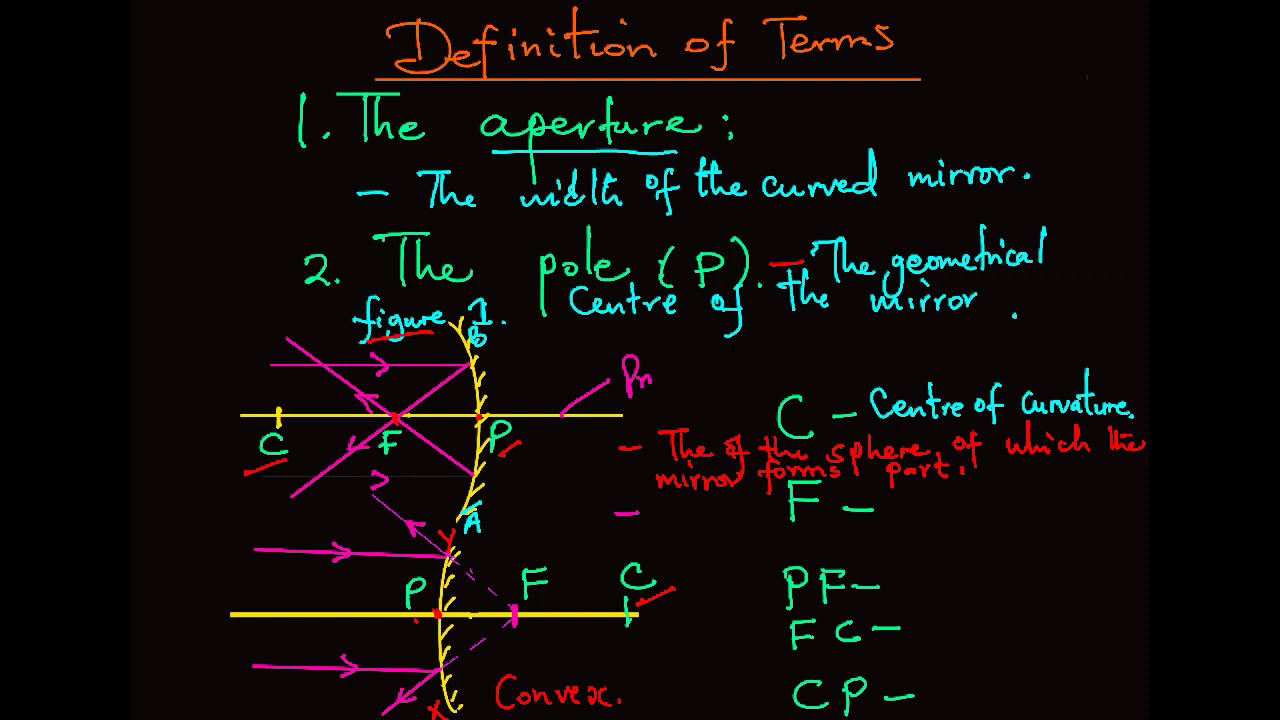 Definition of Terms
1. The aperture:
- The width of the curved mirror.
2. The pole (P). - The geometrical
Centre of the mirror.
figure 1.
B
Pn
C F P
C - Centre of curvature.
- The of the sphere of which the
mirror forms part.
A
F -
-
P F C
PF-
FC-
Convex.
CP-